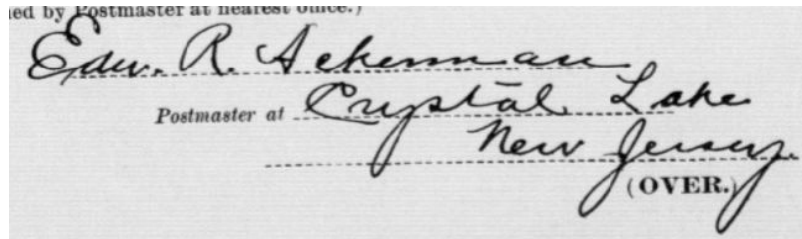 ned by Postmaster at nearest office.)
Edw. R. Ackerman
Postmaster at Crystal Lake
New Jersey.
(OVER.)